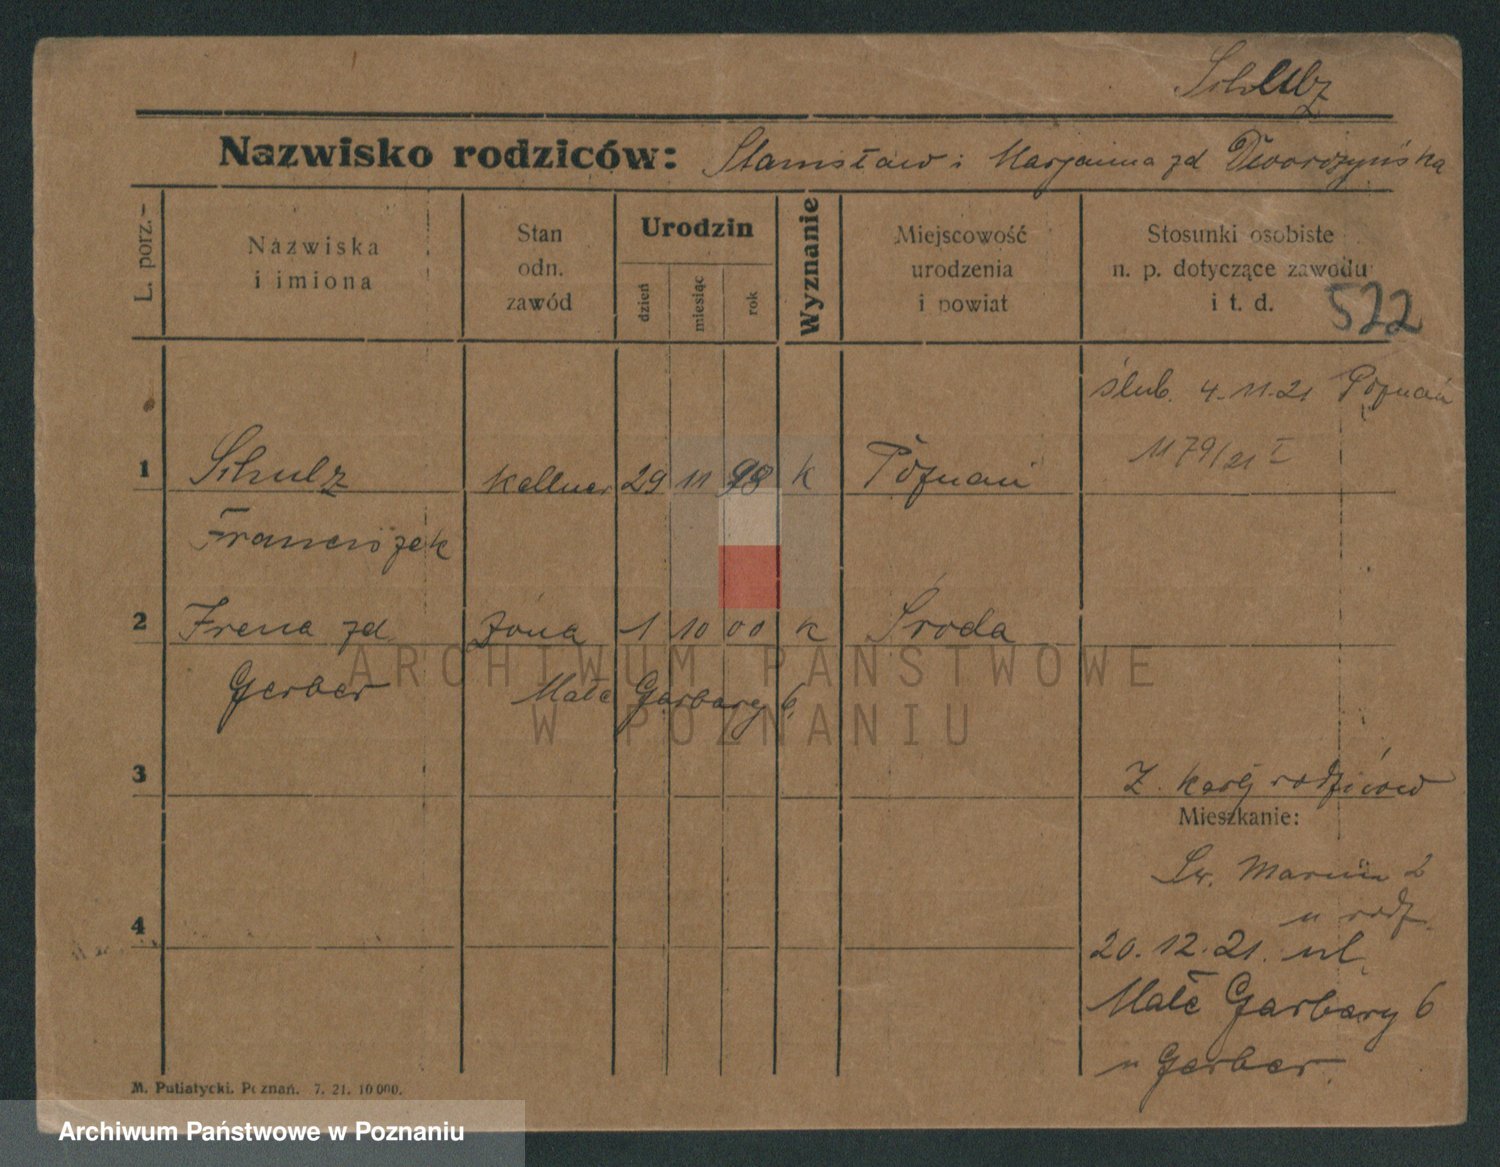 Schulz
Nazwisko rodziców: Stanisław i Marjanna zd Dworożyńska
L. porz.
Nazwiska i imiona
Stan odn. zawód
Urodzin
dzień miesiąc rok
Wyznanie
Miejscowość urodzenia i powiat
Stosunki osobiste n. p. dotyczące zawodu i t. d.
522
ślub. 4.11.21 Poznań
1179/21 I
1 Schulz kellner 29 11 98 k Poznań
Franciszek
2 Irena zd. żona 1 10 00 k Środa
Gerber Małe Garbary 6.
ARCHIWUM PAŃSTWOWE
W POZNANIU
3 Z karty rodziców
Mieszkanie:
Św. Marcin 2
u rodz.
4
20.12.21. ul.
Małe Garbary 6
u Gerber.
M. Putiatycki. Poznań. 7. 21. 10 000.
Archiwum Państwowe w Poznaniu